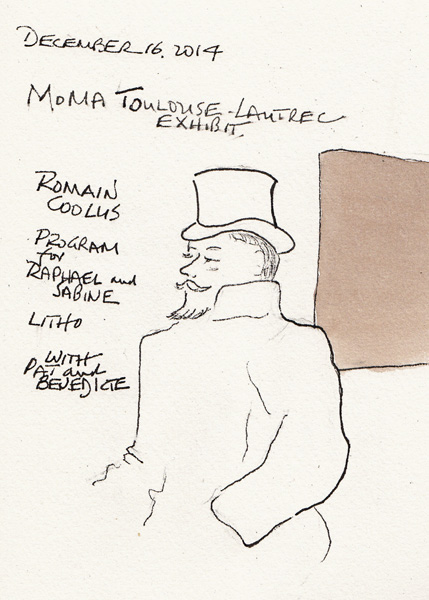 DECEMBER 16, 2014
MOMA TOULOUSE-LAUTREC
EXHIBIT
ROMAIN
COOLUS
PROGRAM
for
RAPHAEL and
SABINE
LITHO
WITH
PAT and
BENEDICTE